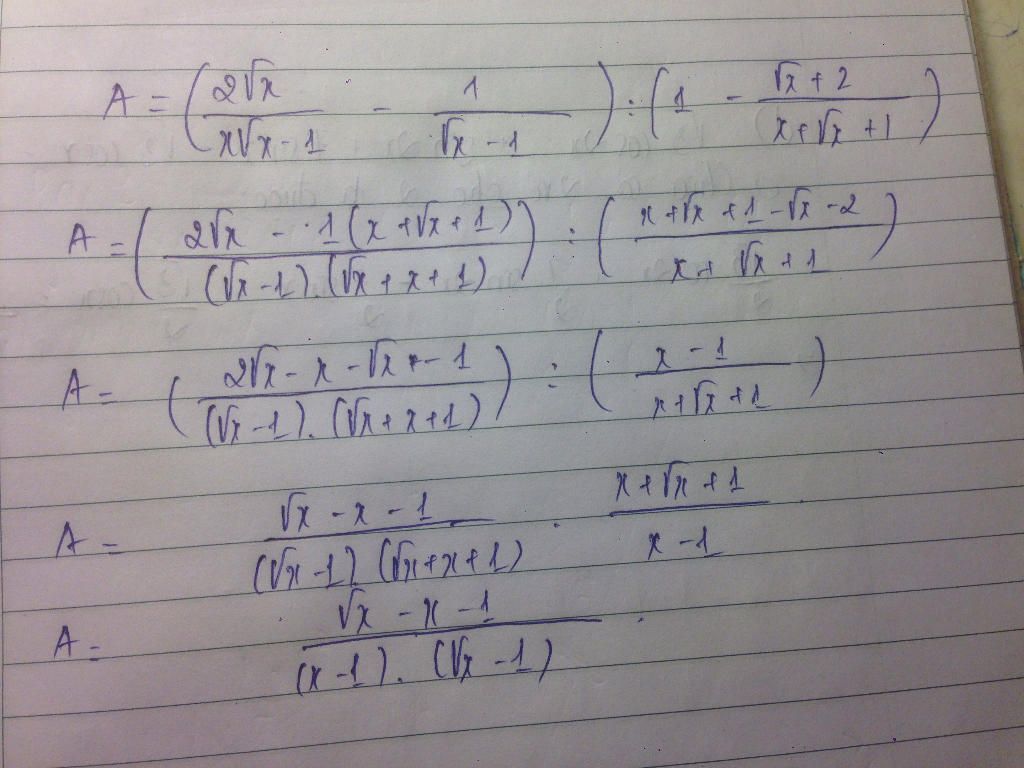 A = ( 2√x / x√x - 1 - 1 / √x - 1 ) : ( 1 - √x + 2 / x + √x + 1 )
A = ( 2√x - 1 ( x + √x + 1 ) / ( √x - 1 ) . ( √x + x + 1 ) ) : ( x + √x + 1 - √x - 2 / x + √x + 1 )
A = ( 2√x - x - √x - 1 / ( √x - 1 ) . ( √x + x + 1 ) ) : ( x - 1 / x + √x + 1 )
A = √x - x - 1 / ( √x - 1 ) ( √x + x + 1 ) . x + √x + 1 / x - 1
A = √x - x - 1 / ( x - 1 ) . ( √x - 1 ) .